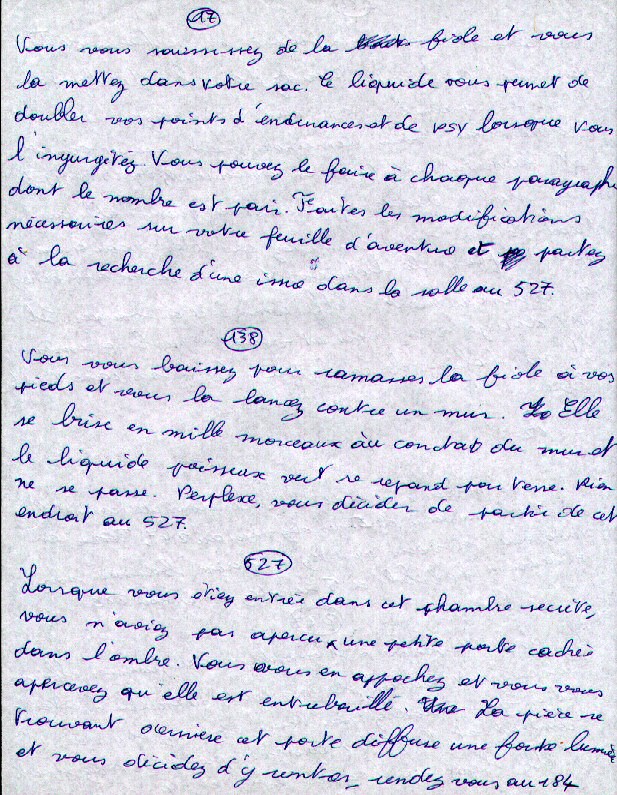 17
Vous vous saisissez de la fiole et vous
la mettez dans votre sac. Ce liquide vous permet de
doubler vos points d'endurances et de psy lorsque vous
l'ingurgitez. Vous pouvez le faire à chaque paragraphe
dont le nombre est pair. Faites les modifications
nécessaires sur votre feuille d'aventure et partez
à la recherche d'une issue dans la salle au 527.
138
Vous vous baissez pour ramasser la fiole à vos
pieds et vous la lancez contre un mur. Elle
se brise en mille morceaux au contact du mur et
le liquide poisseux vert se repand par terre. Rien
ne se passe. Perplexe, vous décider de partir de cet
endroit au 527.
527
Lorsque vous étiez entrée dans cet chambre secrète,
vous n'aviez pas apercu une petite porte cachée
dans l'ombre. Vous vous en approchez et vous vous
apercevez qu'elle est entrebaillé. La pièce se
trouvant derrière cet porte diffuse une forte lumière
et vous décidez d'y rentrer, rendez vous au 184